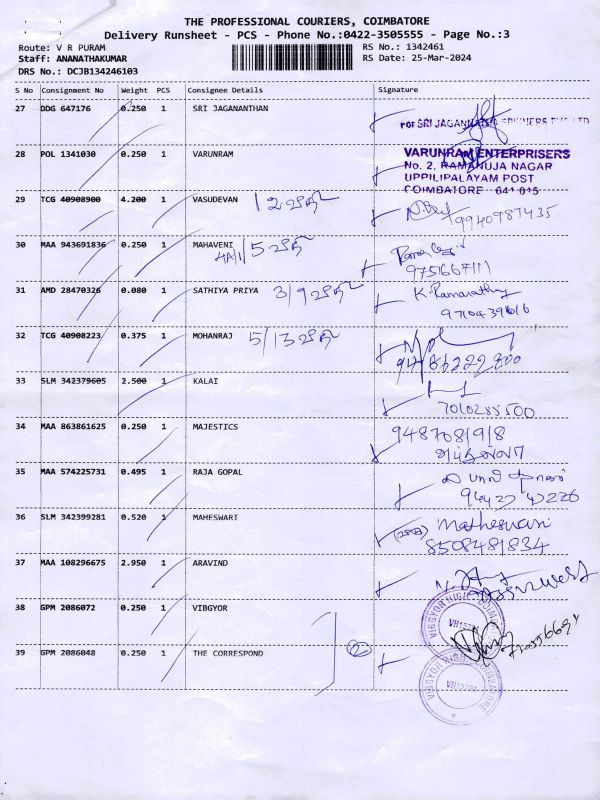 THE PROFESSIONAL COURIERS, COIMBATORE
Delivery Runsheet - PCS - Phone No.:0422-3505555 - Page No.:3
Route: V R PURAM
RS No.: 1342461
Staff: ANANATHAKUMAR
RS Date: 25-Mar-2024
DRS No.: DCJB134246103
S No Consignment No Weight PCS Consignee Details Signature
27 DDG 647176 0.250 1 SRI JAGANANTHAN
For SRI JAGANNATHA SPINNERS PVT LTD
28 POL 1341030 0.250 1 VARUNRAM
VARUNRAM ENTERPRISERS
No. 2, RAMANUJA NAGAR
UPPILIPALAYAM POST
COIMBATORE - 641 015
29 TCG 40908900 4.200 1 VASUDEVAN 12
9940987435
30 MAA 943691836 0.250 1 MAHAVENI
4A/1/5
31 AMD 28470326 0.080 1 SATHIYA PRIYA 3/9
K. Ramarathy
9710439616
32 TCG 40908223 0.375 1 MOHANRAJ 5/13
33 SLM 342379605 2.500 1 KALAI
7010285500
34 MAA 863861625 0.250 1 MAJESTICS
9487081918
35 MAA 574225731 0.495 1 RAJA GOPAL
36 SLM 342399281 0.520 1 MAHESWARI
Matheswari
8508481834
37 MAA 108296675 2.950 1 ARAVIND
38 GPM 2086072 0.250 1 VIBGYOR
39 GPM 2086048 0.250 1 THE CORRESPOND
2
VIBGYOR HIGH
VIBGYOR HIGH